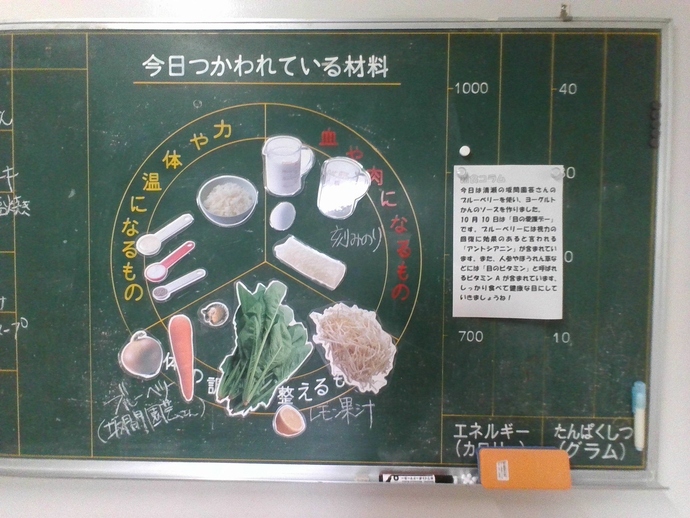 今日つかわれている材料
体や力
温になるもの
血や肉になるもの
体の調
整えるも
刻みのり
ブルーベリー
レモン果汁
1000
700
40
10
エネルギー
たんぱくしつ
(グラム)
コラム
今日は清瀬の坂間園芸さんの
ブルーベリーを使い、ヨーグルト
かんのソースを作りました。
10月10日は「目の愛護デー」
です。ブルーベリーには視力の
回復に効果のあると言われる
「アントシアニン」が含まれてい
ます。また、人参やほうれん草な
どには「目のビタミン」と呼ばれ
るビタミンAが含まれています。
しっかり食べて健康な目にして
いきましょうね!